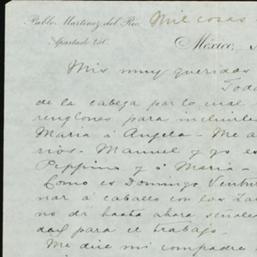 Pablo Martinez del Rio Mil cosas
Apartado 250.
México,
Mis muy queridas
Toda
de la cabeza por lo cual
renglones para incluirle
Maria á Angela - Me a
rios. Manuel y yo es
Peppino y á Maria -
Como es Domingo
nar á caballo con los
no dr hasta ahora señales
dad para el trabajo.
Me dice mi compadre